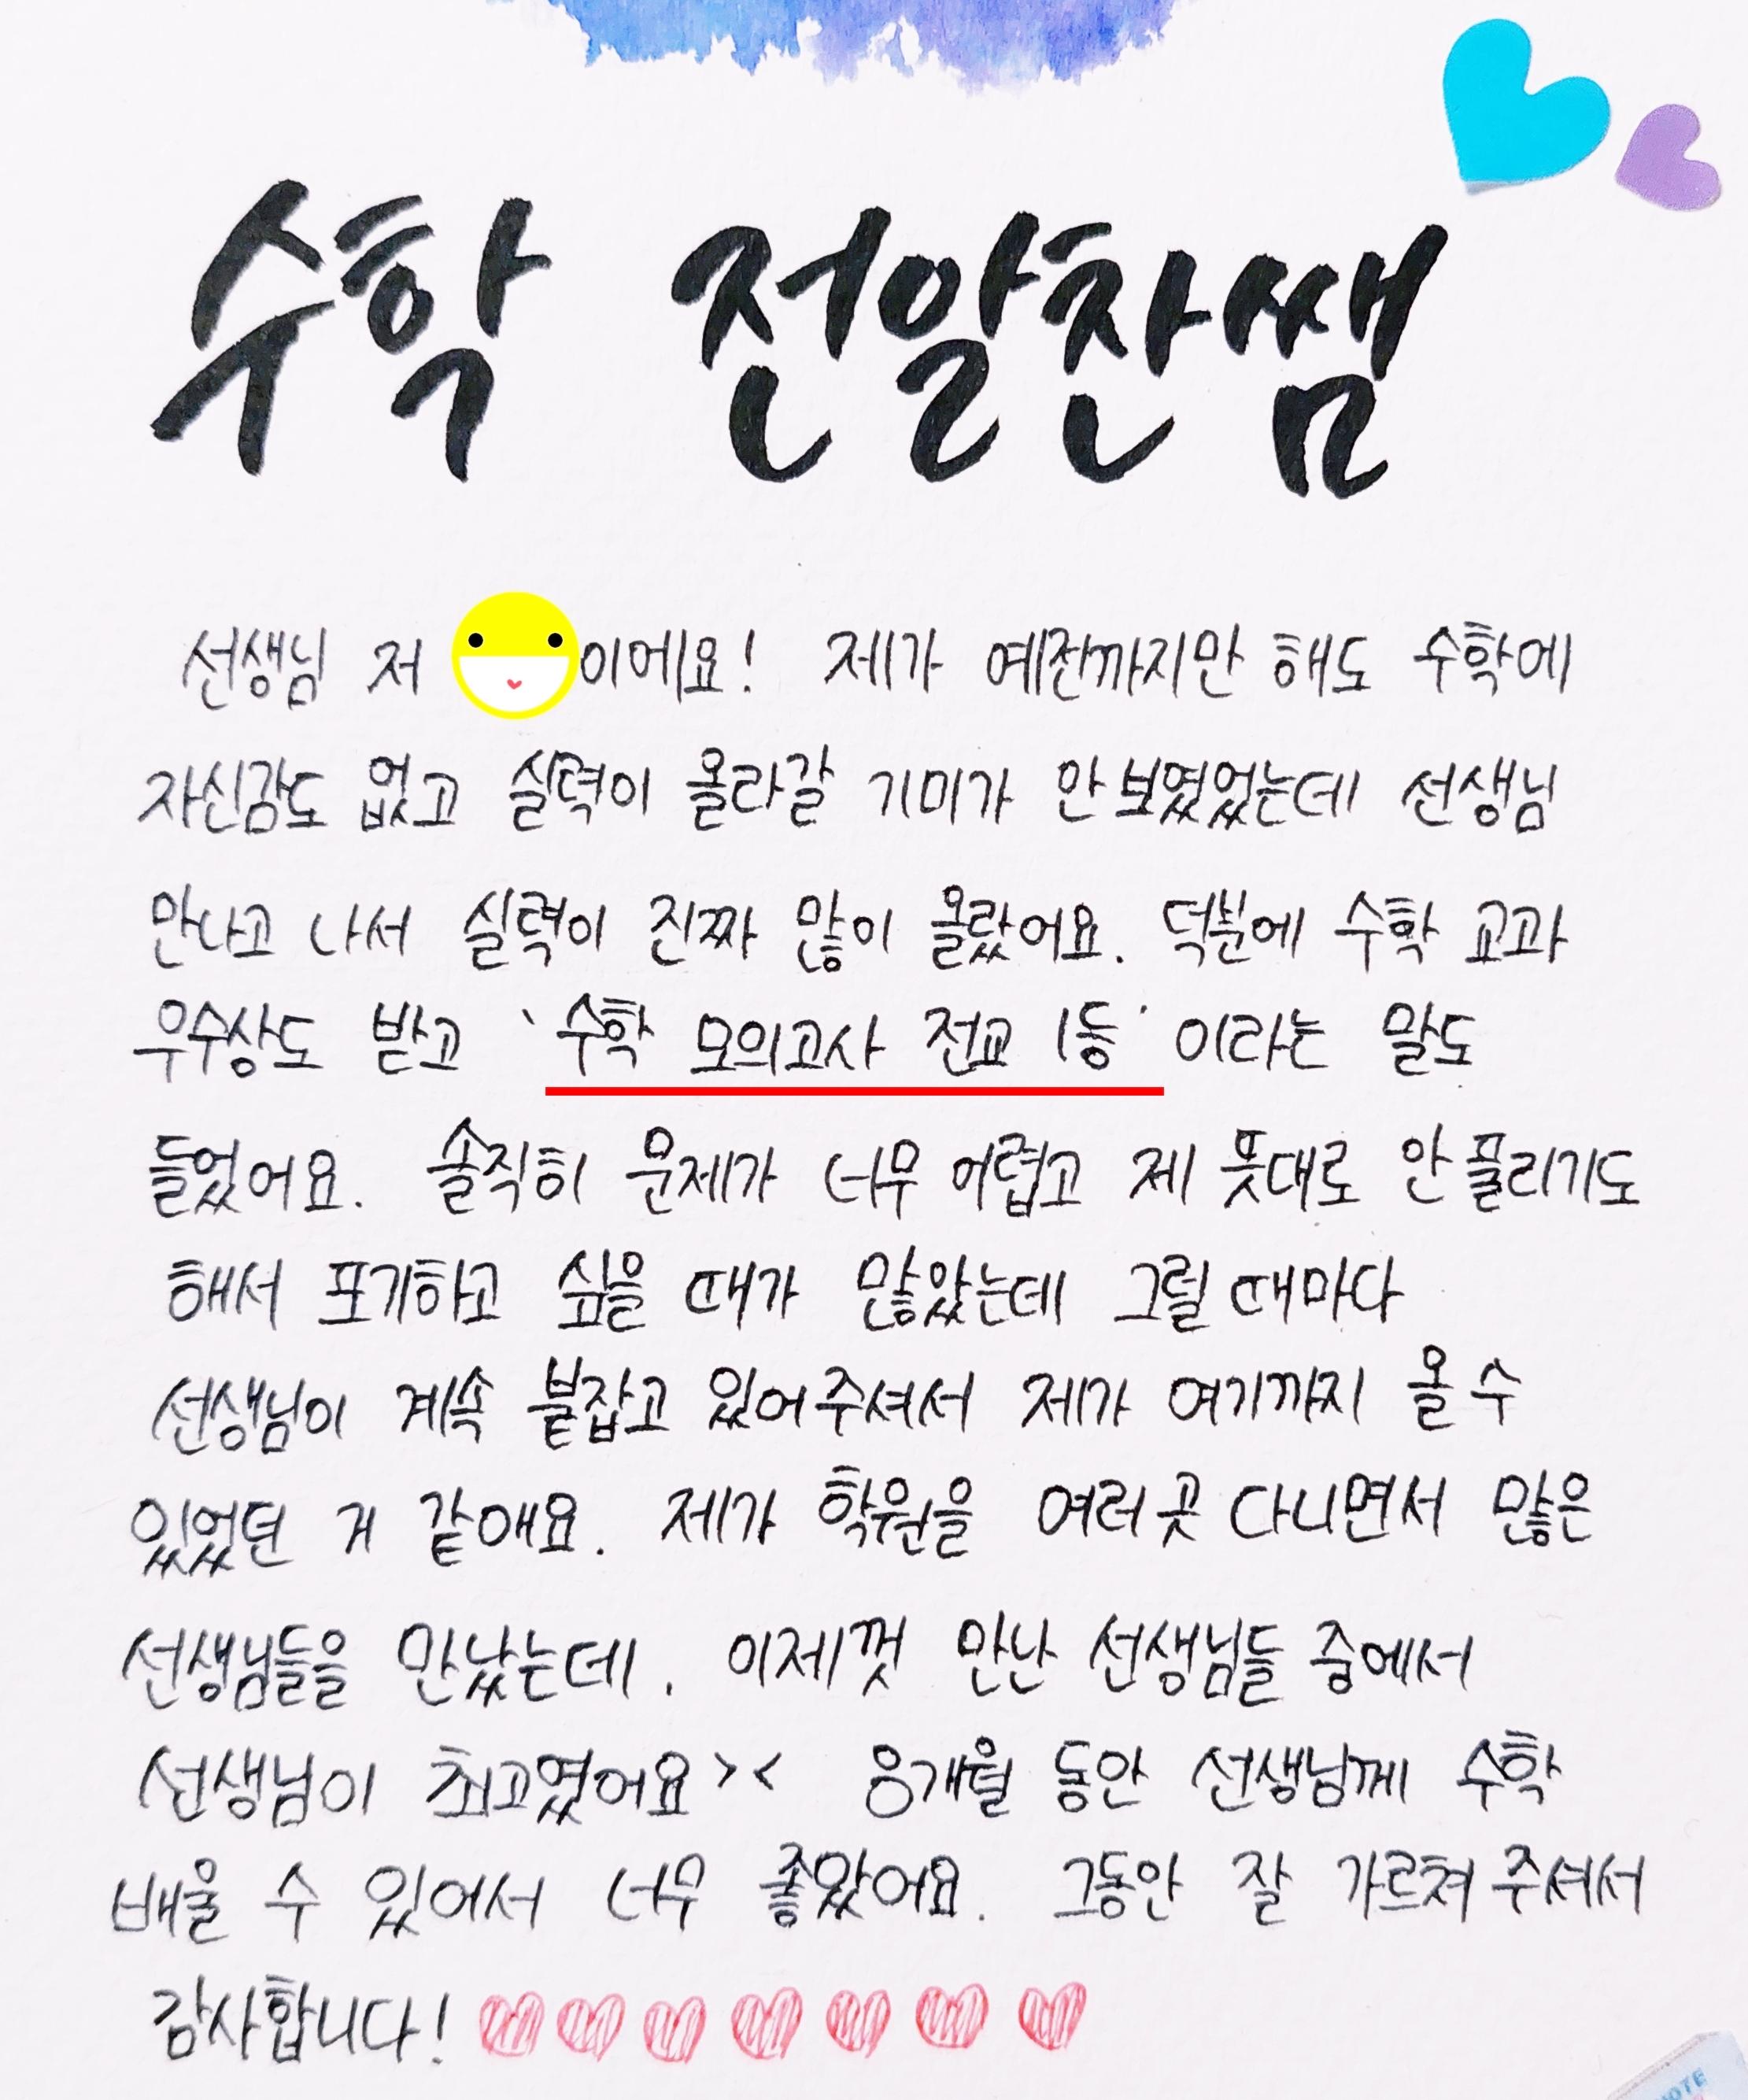 수학 전알찬쌤
선생님 저 이에요! 제가 예전까지만 해도 수학에
자신감도 없고 실력이 올라갈 기미가 안보였었는데 선생님
만나고 나서 실력이 진짜 많이 올랐어요. 덕분에 수학 교과
우수상도 받고 '수학 모의고사 전교 1등' 이라는 말도
들었어요. 솔직히 문제가 너무 어렵고 제 뜻대로 안풀리기도
해서 포기하고 싶을 때가 많았는데 그럴때마다
선생님이 계속 붙잡고 있어주셔서 제가 여기까지 올수
있었던 거 같애요. 제가 학원을 여러곳 다니면서 많은
선생님들을 만났는데. 이제껏 만난 선생님들 중에서
선생님이 최고였어요>< 8개월 동안 선생님께 수학
배울 수 있어서 너무 좋았어요. 그동안 잘 가르쳐주셔서
감사합니다! ♡♡♡♡♡♡♡
NOTE